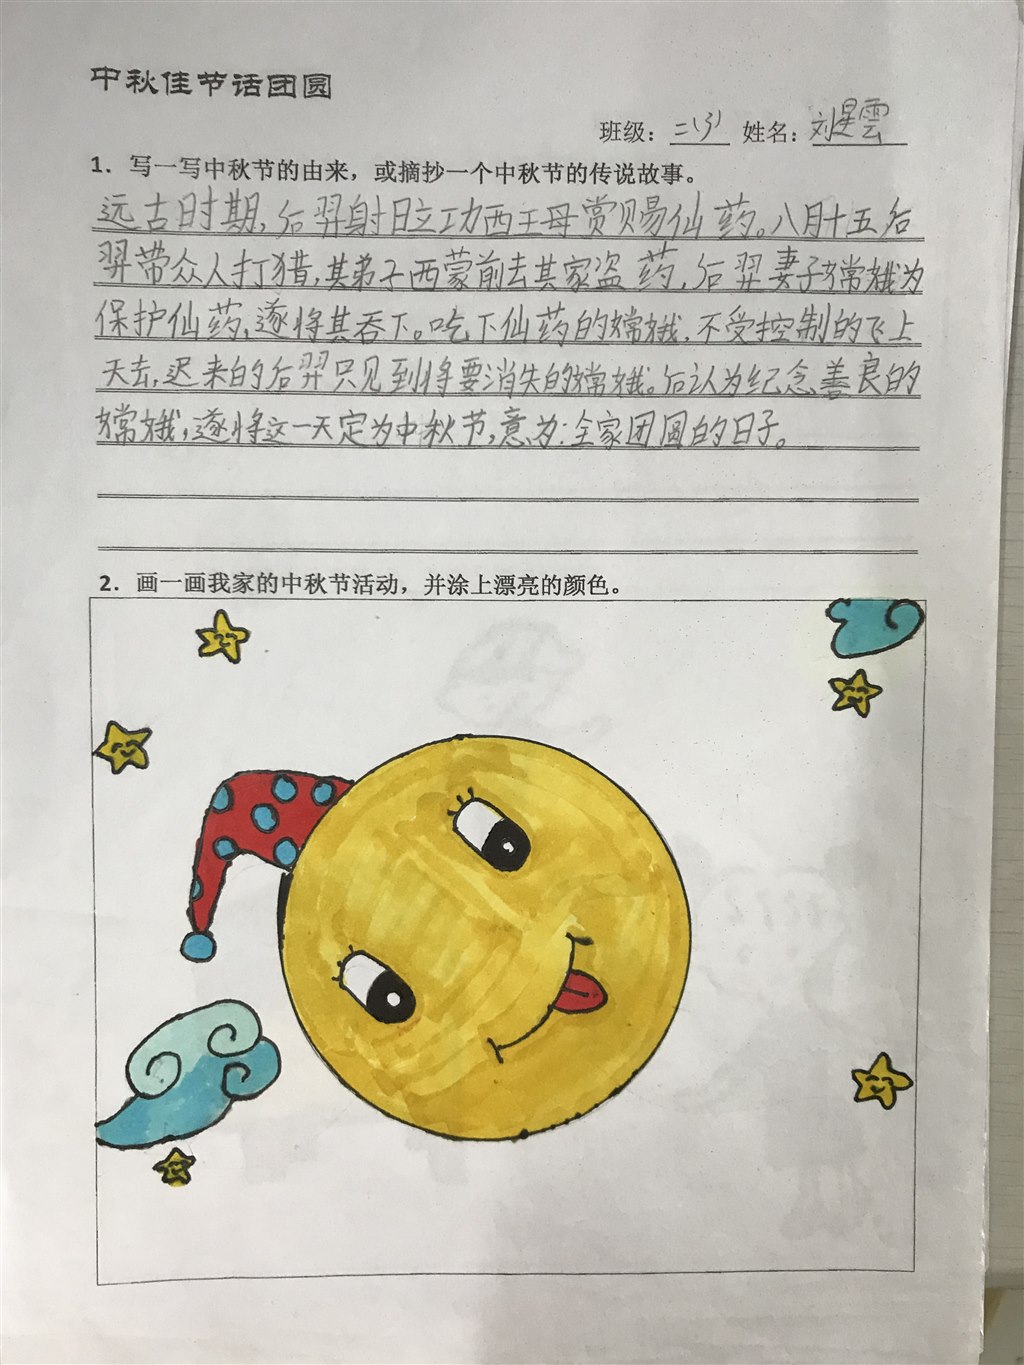 中秋佳节话团圆
班级：二（3） 姓名：刘星雲
1．写一写中秋节的由来，或摘抄一个中秋节的传说故事。
远古时期，后羿射日立功西王母赏赐仙药。八月十五后
羿带众人打猎，其弟子西蒙前去其家盗药，后羿妻子嫦娥为
保护仙药，遂将其吞下。吃下仙药的嫦娥，不受控制的飞上
天去，迟来的后羿只见到将要消失的嫦娥。后认为纪念善良的
嫦娥，遂将这一天定为中秋节，意为：全家团圆的日子。
2．画一画我家的中秋节活动，并涂上漂亮的颜色。